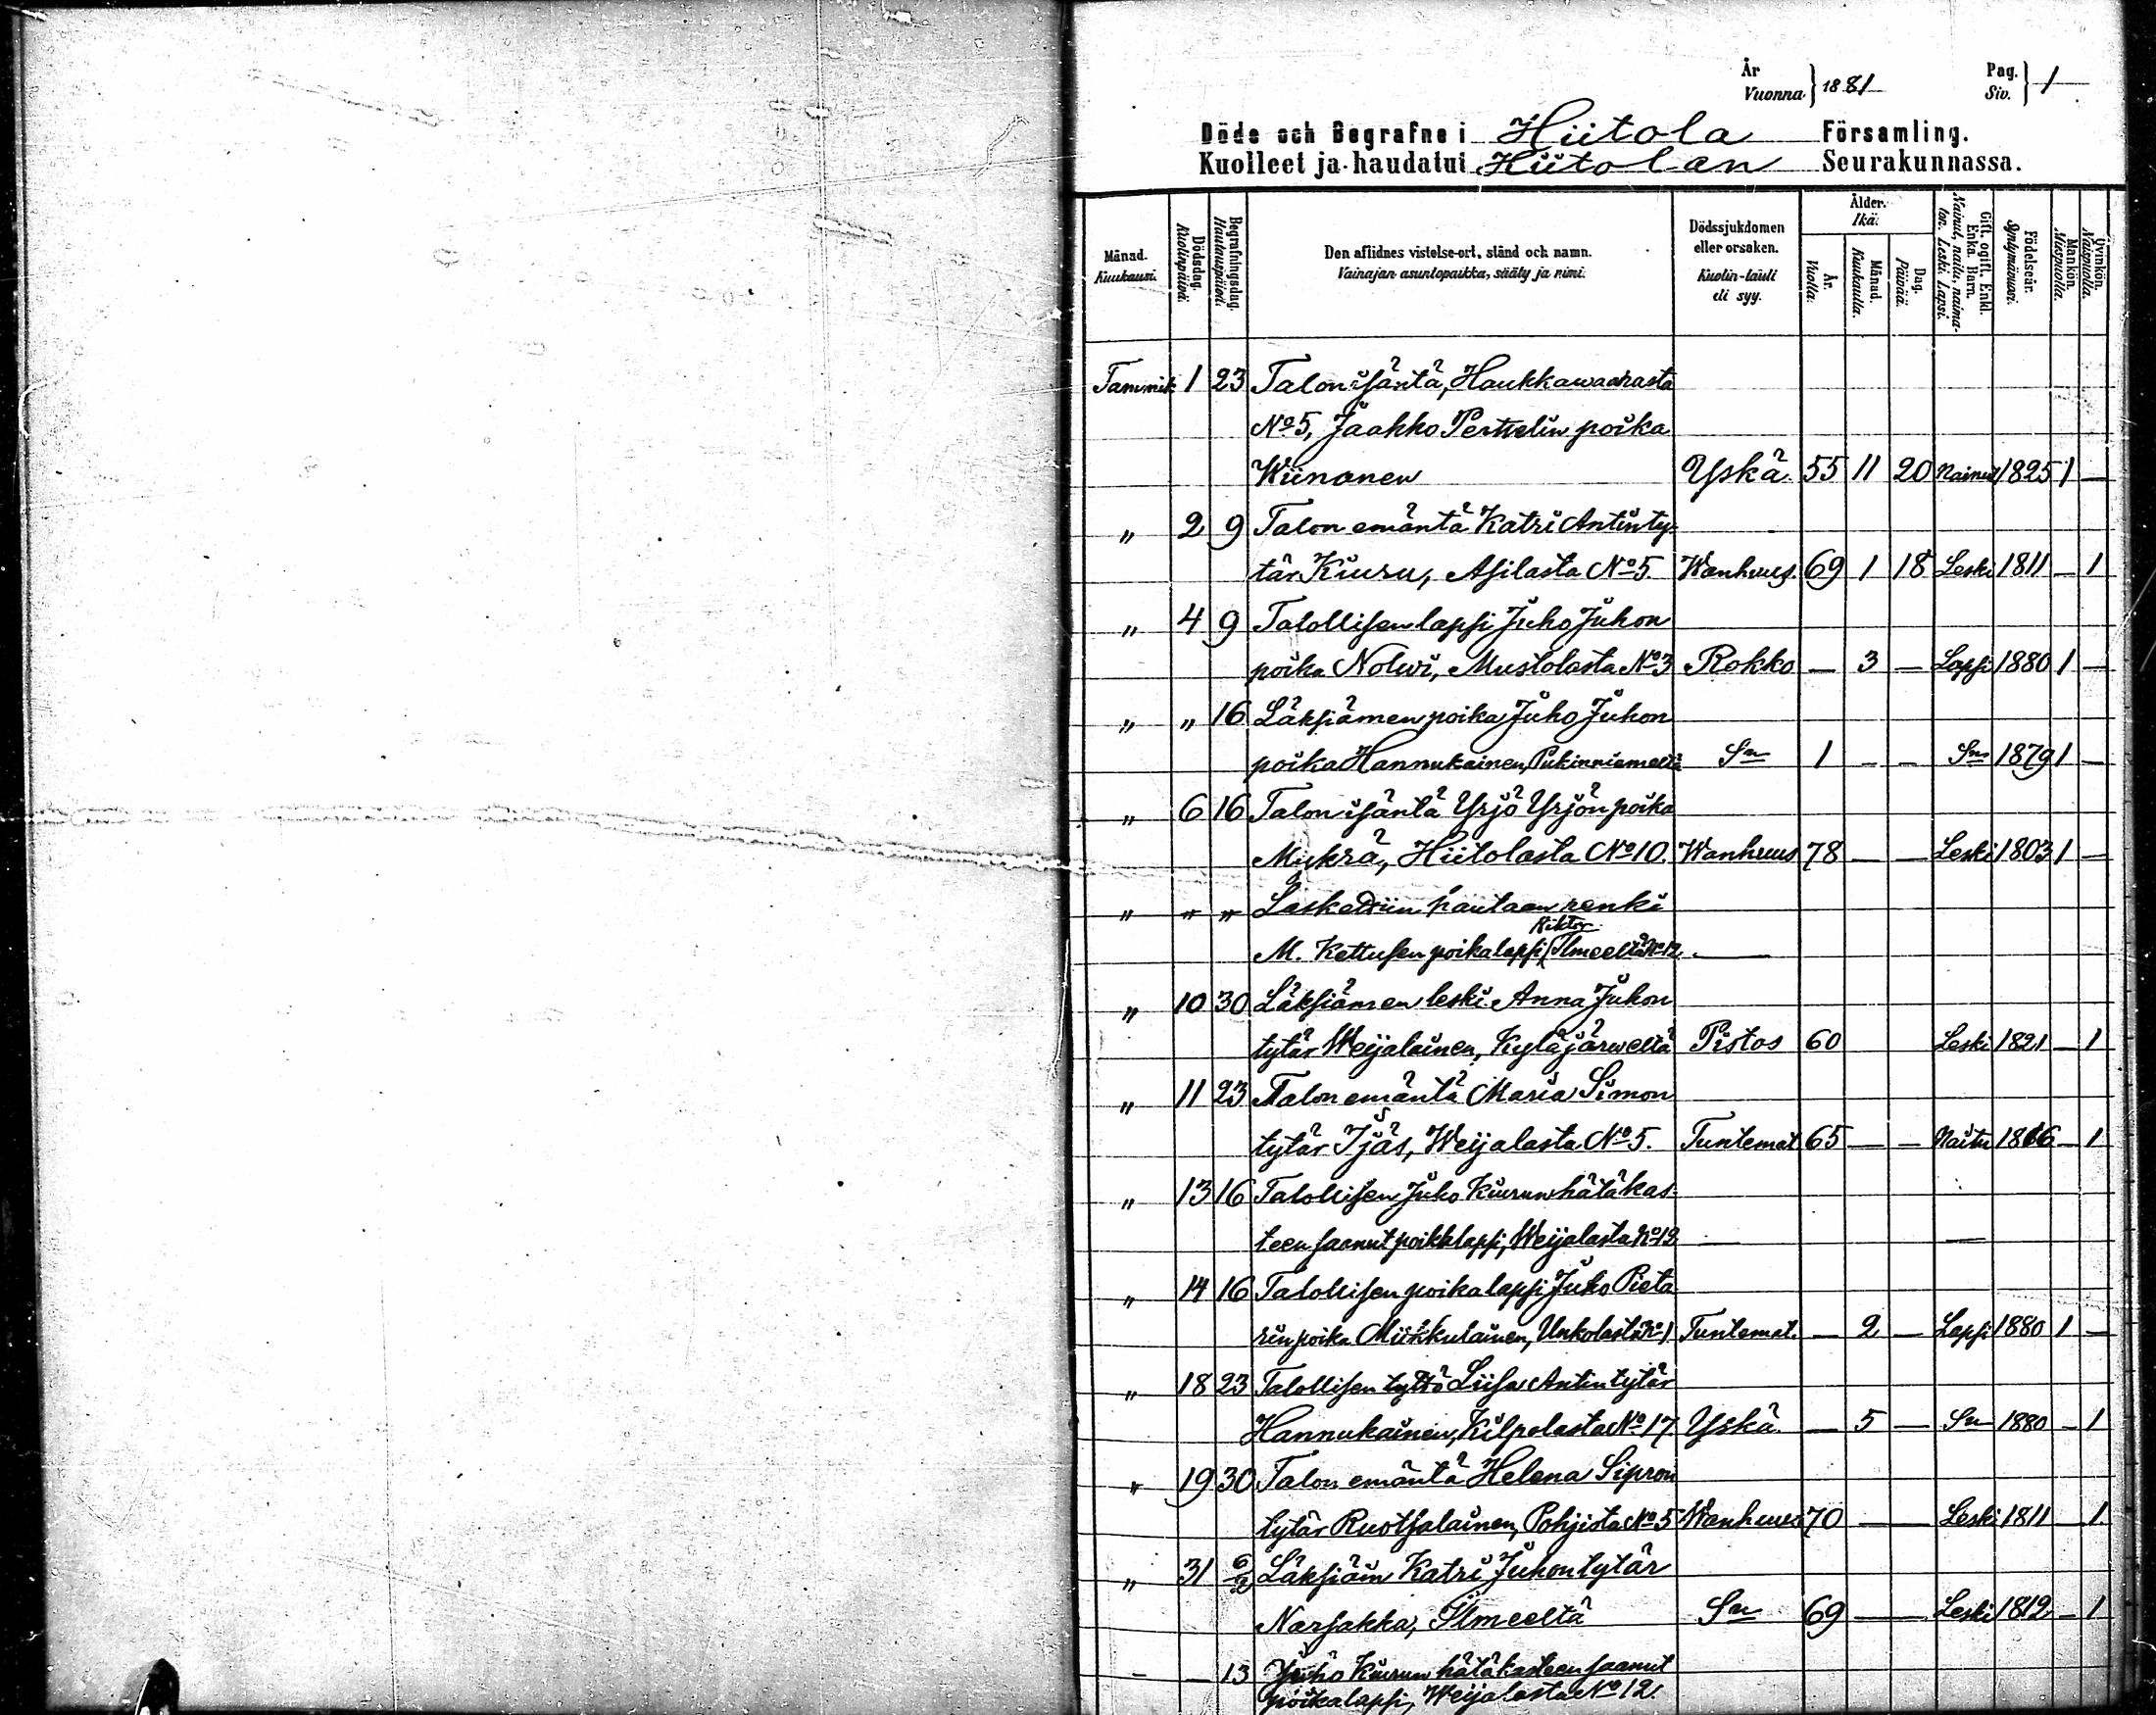 År Vuonna } 1881 Pag. Siv. } 1
Döde och Begrafne i Hiitola Församling.
Kuolleet ja haudatut Hiitolan Seurakunnassa.
Månad. Kuukausi.
Dödsdag. Kuolinpäivä.
Begrafningsdag. Hautauspäivä.
Den aflidnes vistelse-ort, stånd och namn.
Vainajan asuntopaikka, sääty ja nimi.
Dödssjukdomen eller orsaken.
Kuolin-tauti eli syy.
Ålder. Ikä.
År. Vuotta.
Månad. Kuukautta.
Dag. Päivää.
Gift, ogift. Enkl. Enka. Barn.
Nainut, naitu, naimaton. Leski. Lapsi.
Födelseår. Syntymävuosi.
Mankön. Miespuolia.
Qvinkön. Naispuolia.
Tammik 1 23 Talon isäntä, Haukkawaarasta
No 5, Jaakko Perttelin poika
Wiinonen Yskä. 55 11 20 Nainut 1825 1 —
" 2 9 Talon emäntä Katri Antinty-
tär Kiuru, Asilasta No 5. Wanhuus. 69 1 18 Leski 1811 — 1
" 4 9 Talollisen lapsi Juho Juhon
poika Nolwi, Mustolasta No 3 Rokko — 3 — Lapsi 1880 1 —
" " 16 Läksiämen poika Juho Juhon
poika Hannukainen, Pukinniemeltä Sn 1 — — Sn 1879 1 —
" 6 16 Talon isäntä Yrjö Yrjön poika
Mukrä, Hiitolasta No 10. Wanhuus 78 — — Leski 1803 1 —
" " " Laskettiin hautaan renki
M. Kettusen poikalapsi Ilmeeltä No 12. —
" 10 30 Läksiämen leski Anna Juhon
tytär Weijalainen, Kyläjärweltä Pistos 60 Leski 1821 — 1
" 11 23 Talon emäntä Maria Simon
tytär Ijäs, Weijalasta No 5. Tuntemat. 65 — — Naitu 1816 — 1
" 13 16 Talollisen Juho Kiurun hätäkas-
teen saanut poikalapsi, Weijalasta No 13 — —
" 14 16 Talollisen poikalapsi Juho Pieta
rin poika Miikkulainen, Unkolasta No 1 Tuntemat. — 2 — Lapsi 1880 1 —
" 18 23 Talollisen tyttö Liisa Antintytär
Hannukainen, Kilpolasta No 17 Yskä. — 5 — Sn 1880 — 1
" 19 30 Talon emäntä Helena Sipron
tytär Ruotsalainen, Pohjista No 5 Wanhuus 70 — Leski 1811 — 1
" 31 6/2 Läksiäin Katri Juhontytär
Narsakka, Ilmeeltä Sn 69 — Leski 1812 — 1
— — 13 Juho Kiurun hätäkasteen saanut
poikalapsi, Weijalasta No 12.